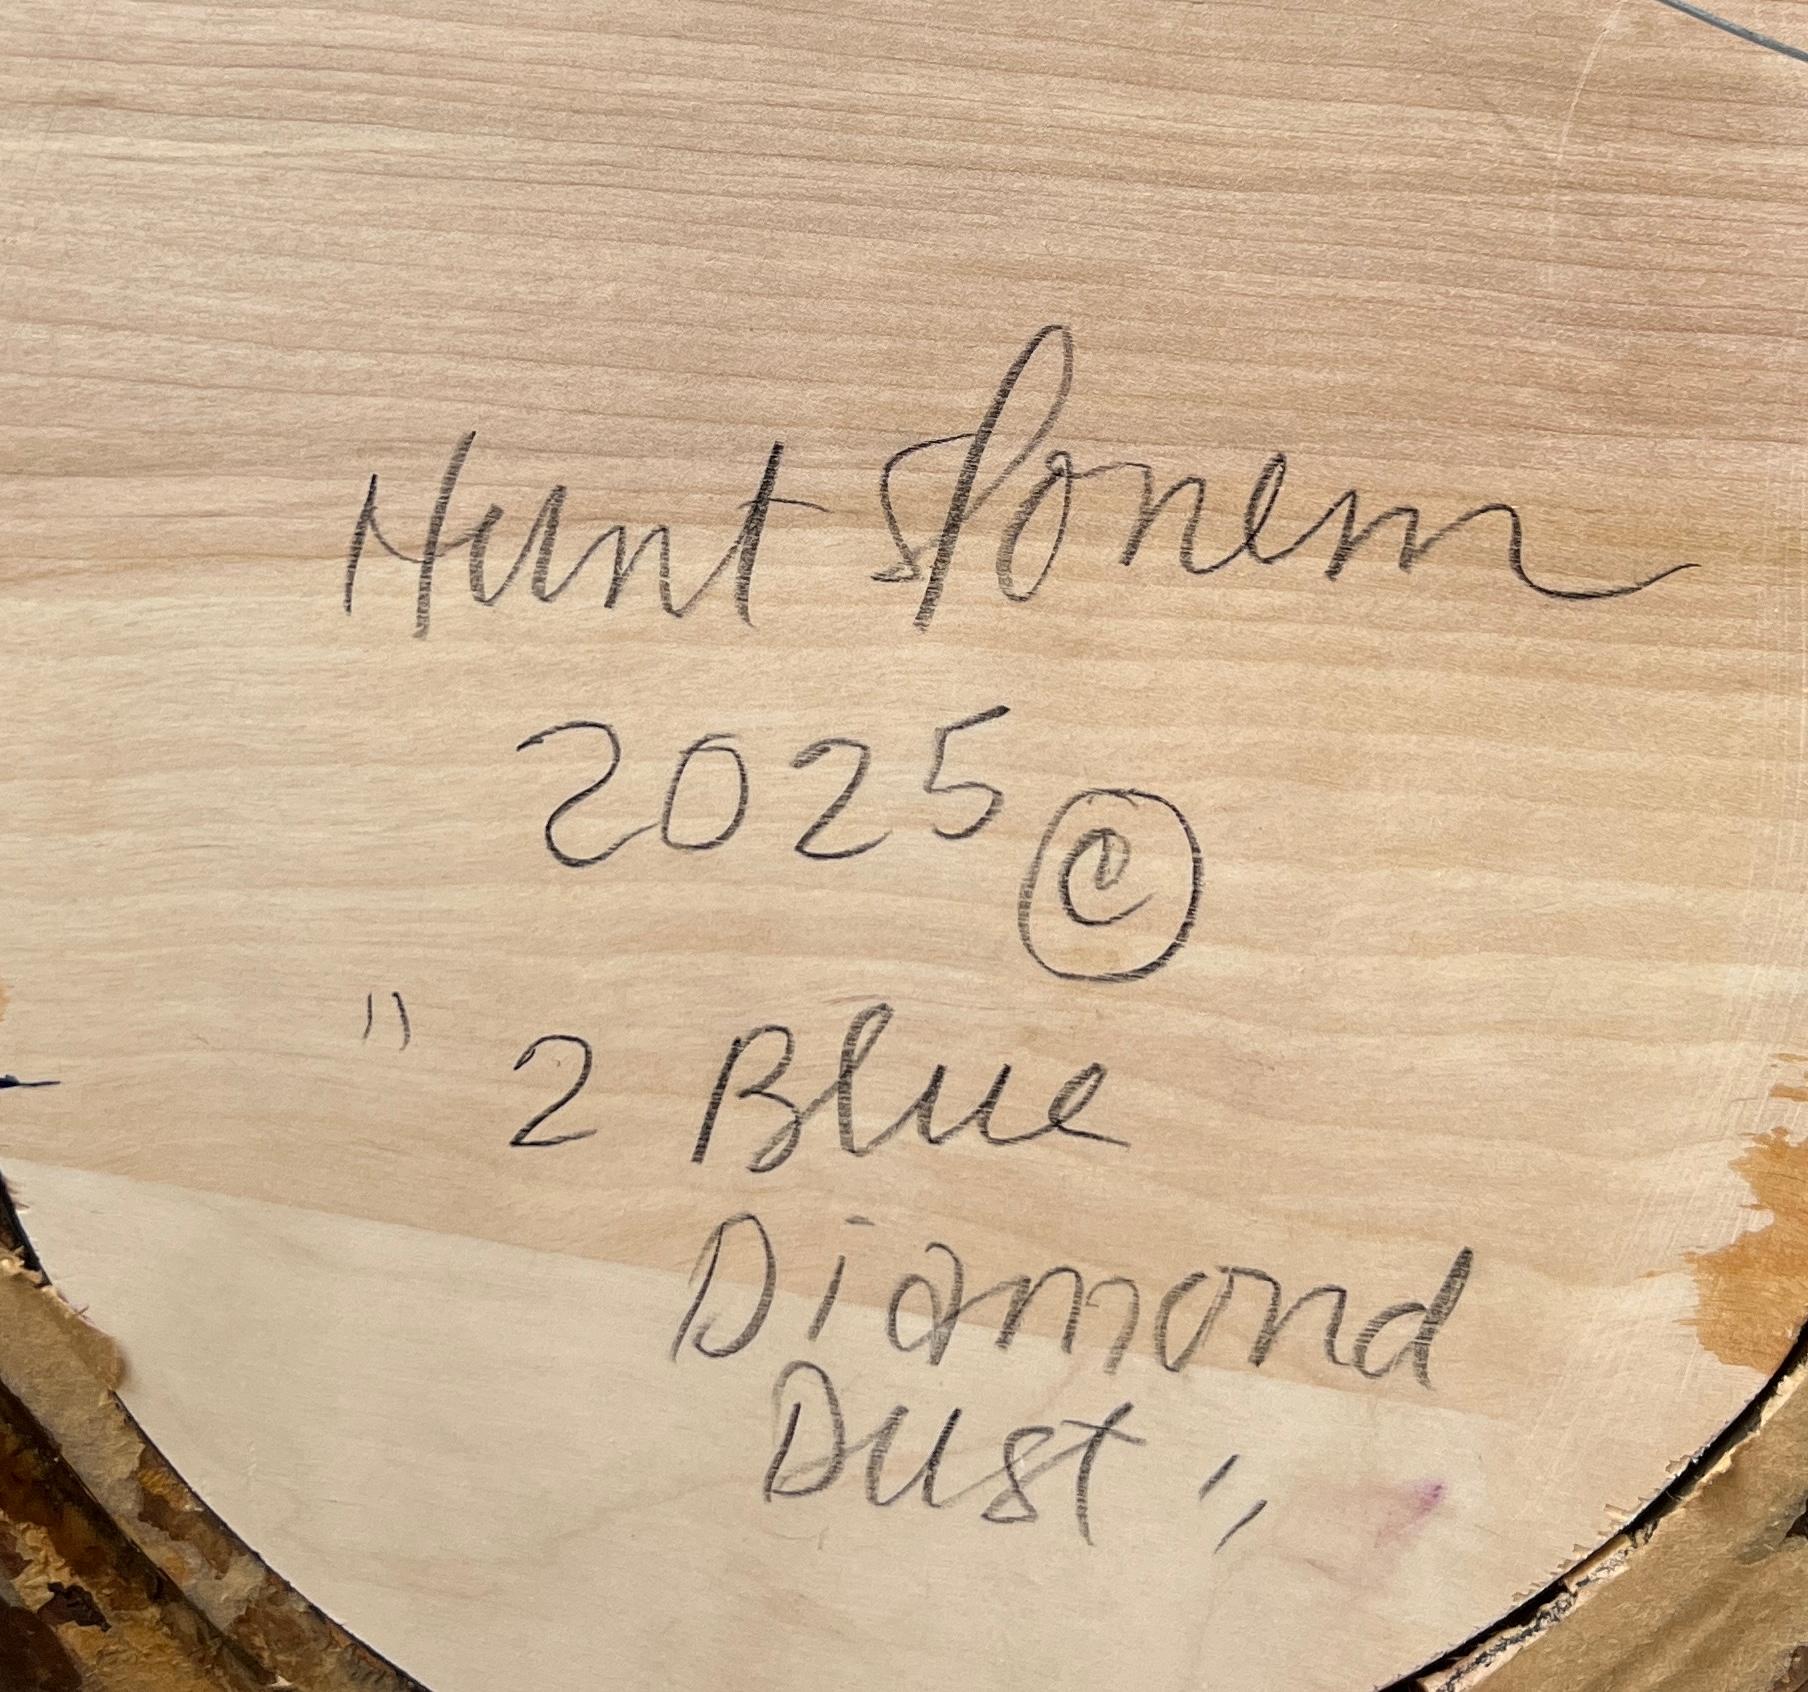 Hunt Slonem
2025 ©
" 2 Blue
Diamond
Dust "